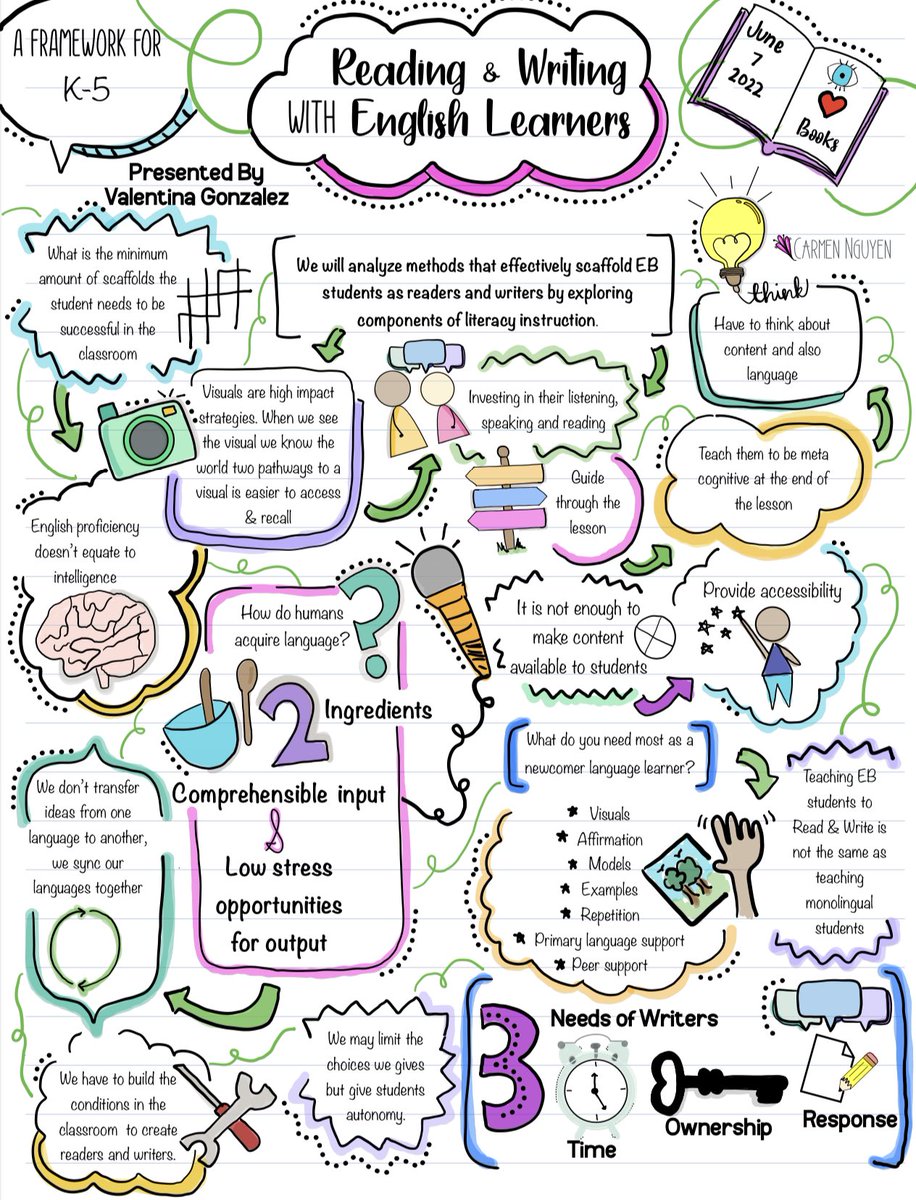 A FRAMEWORK FOR
K-5
Reading & Writing
WITH English Learners
June
7
2022
Books
Presented By
Valentina Gonzalez
CARMEN NGUYEN
What is the minimum
amount of scaffolds the
student needs to be
successful in the
classroom
We will analyze methods that effectively scaffold EB
students as readers and writers by exploring
components of literacy instruction.
think
Have to think about
content and also
language
Visuals are high impact
strategies. When we see
the visual we know the
world two pathways to a
visual is easier to access
& recall
Investing in their listening,
speaking and reading
Guide
through the
lesson
Teach them to be meta
cognitive at the end of
the lesson
English proficiency
doesn't equate to
intelligence
How do humans
acquire language?
?
2 Ingredients
Comprehensible input
&
Low stress
opportunities
for output
It is not enough to
make content
available to students
Provide accessibility
What do you need most as a
newcomer language learner?
★ Visuals
★ Affirmation
★ Models
★ Examples
★ Repetition
★ Primary language support
★ Peer support
Teaching EB
students to
Read & Write is
not the same as
teaching
monolingual
students
We don't transfer
ideas from one
language to another,
we sync our
languages together
We have to build the
conditions in the
classroom to create
readers and writers.
We may limit the
choices we gives
but give students
autonomy.
3 Needs of Writers
Time
Ownership
Response